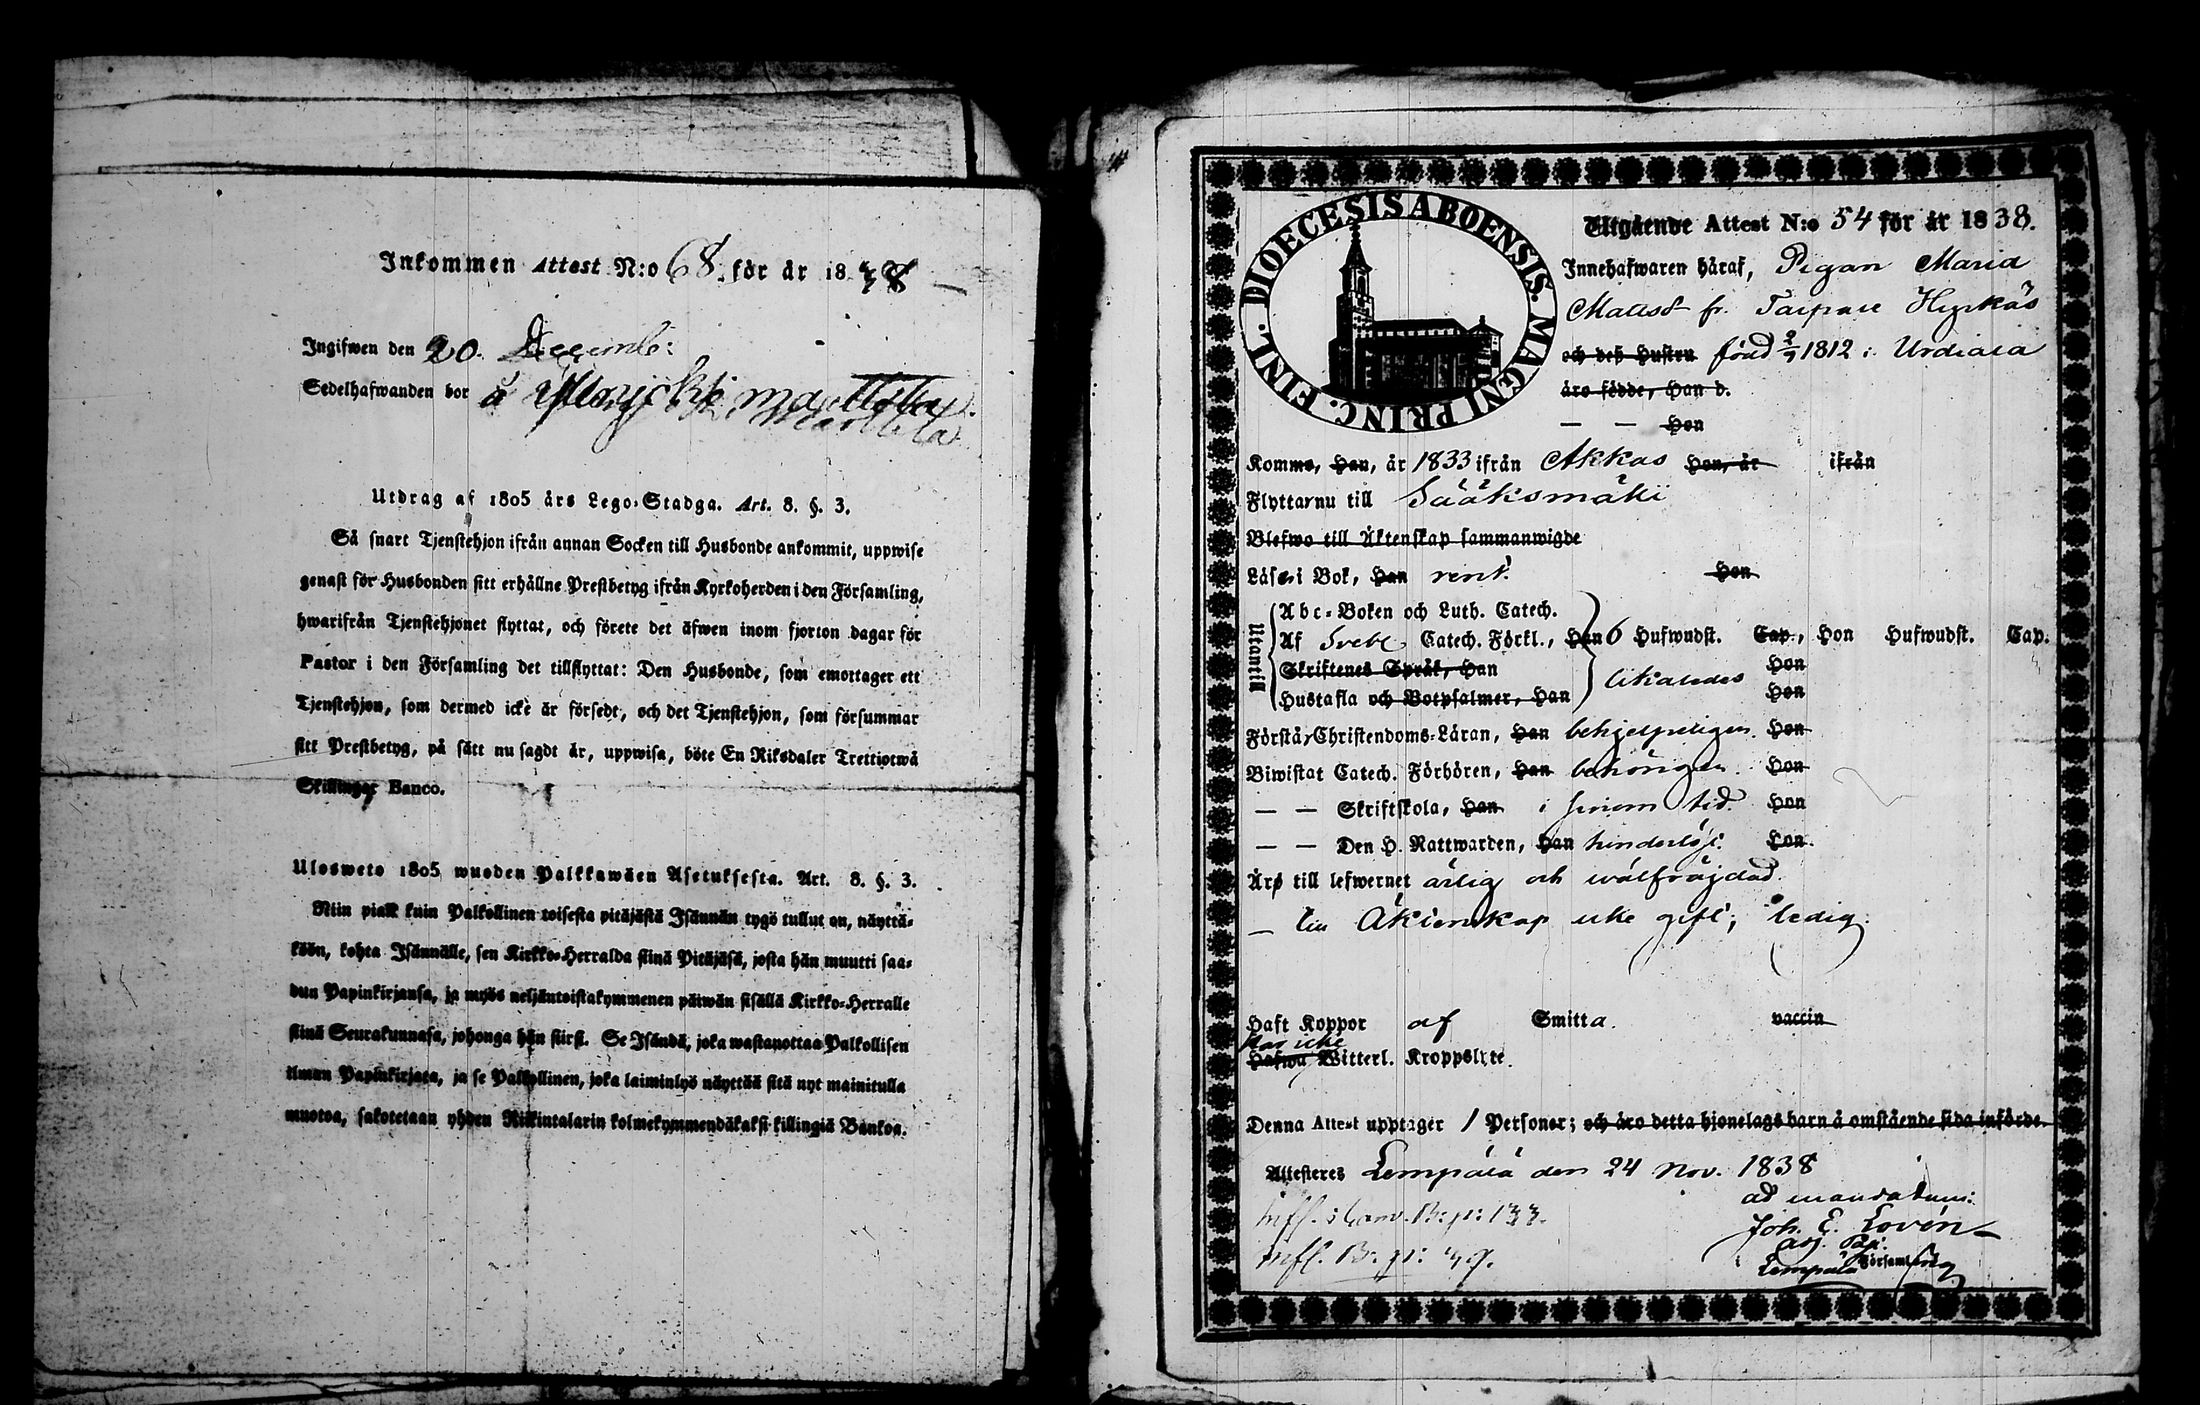 Inkommen Attest N:o 68. för år 18 38
Ingifwen den 20. Decemb:
Sedelhafwanden bor å Marttila
Marttila
Utdrag af 1805 års Lego-Stadga. Art. 8. §. 3.
Så snart Tjenstehjon ifrån annan Socken till Husbonde ankommit, uppwise
genast för Husbonden sitt erhållne Prestbetyg ifrån Kyrkoherden i den Församling,
hwarifrån Tjenstehjonet flyttat, och förete det äfwen inom fjorton dagar för
Pastor i den Församling det tillflyttat: Den Husbonde, som emottager ett
Tjenstehjon, som dermed icke är försedt, och det Tjenstehjon, som försummar
sitt Prestbetyg, på sätt nu sagdt är, uppwisa, böte En Riksdaler Trettiotwå
Skillingar Banco.
Ulosweto 1805 wuoden Palkkawäen Asetuksesta. Art. 8. §. 3.
Niin piakk kuin Palkollinen toisesta pitäjästä Isännän tygö tullut on, näyttä-
köön, kohta Isännälle, sen Kirkko-Herralda siinä Pitäjäsä, josta hän muutti saa-
dun Papinkirjansa, ja myös neljäntoistakymmenen päiwän sisällä Kirkko-Herralle
siinä Seurakunnasa, johonga hän siirsi. Se Isändä, joka wastanottaa Palkollisen
ilman Papinkirjata, ja se Palkollinen, joka laiminlyö näyttää sitä nyt mainitulla
muotoa, sakotetaan yhden Riikintalarin kolmekymmendäkaksi killingiä Bankoa.
DIOECESIS ABOENSIS. MAGNI PRINC. FINL.
Utgående Attest N:o 54 för år 1838.
Innehafwaren häraf, Pigan Maria
Mattsd fr. Taipale Hyrkäs
och deß Hustru född 2/9 1812 i Urdiala
äro födde, Han d.
— — Hon
Komme, Han, år 1833 ifrån Akkas Hon, år ifrån
Flyttar nu till Sääksmäki
Blefwo till Äktenskap sammanwigde
Läser i Bok, Han rent. Hon
Utantill
Abc-Boken och Luth. Catech.
Af Sveb. Catech. Förkl., Han 6 Hufwudst. Cap., Hon Hufwudst. Cap.
Skriftenes Språk, Han Hon
Hustafla och Botpsalmer, Han likaledes Hon
Förstår Christendoms-Läran, Han behjelpeligen. Hon
Biwistat Catech. Förhören, Han behörigen. Hon
— — Skriftskola, Han i sinom tid. Hon
— — Den H. Nattwarden, Han hinderlös. Hon.
Äro till lefwernet ärlig och wälfräjdad.
— till Äktenskap icke gift; ledig.
Haft Koppor af Smitta. vaccin
Har icke
Hafwa Witterl. Kroppslyte.
Denna Attest upptager 1 Personer; och äro detta hjonelags barn å omstående sida införde.
Attesteres Lempälä den 24 Nov. 1838
ad mandatum:
Infl. i Com. B: p: 133.
Joh. E. Lovén
adj. Past.
Infl. B: p: 49.
Lempälä Församling